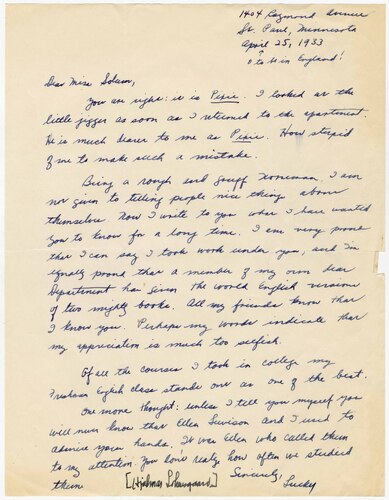 1404 Raymond Avenue
St. Paul, Minnesota
April 25, 1933
O to be in England!
Dear Miss Solum,
You are right: it is Pixie. I looked at the
little jigger as soon as I returned to the apartment.
He is much dearer to me as Pixie. How stupid
of me to make such a mistake.
Being a rough and gruff I am
not given to telling people nice things about
themselves. Now I write to you what I have wanted
you to know for a long time. I am very proud
that I can say I took work under you, and I'm
equally proud that a member of my own dear
Department has given the world English versions
of two mighty books. All my friends know that
I know you. Perhaps my words indicate that
my appreciation is much too selfish.
Of all the courses I took in college my
Freshman English class stands out as one of the best.
One more thought: unless I tell you myself you
will never know that Ellen and I used to
admire your hands. It was Ellen who called them
to my attention. You don't realize how often we studied
them
Sincerely,
Lucky
[Hjalmar]